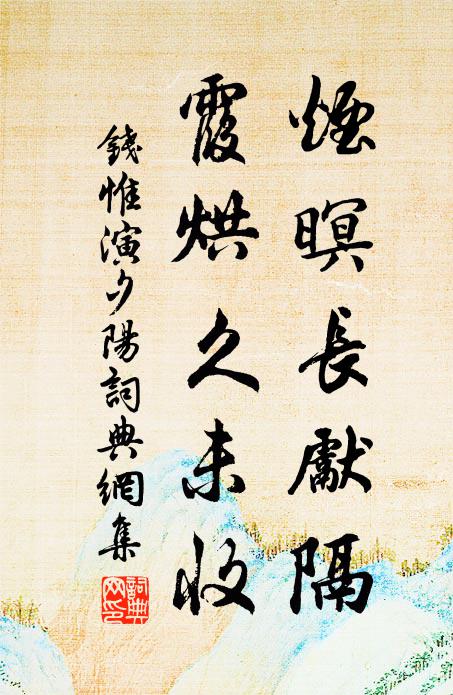 煙暝長獻隔
霞烘久未收
錢惟演夕陽詞典網集
詞典網印